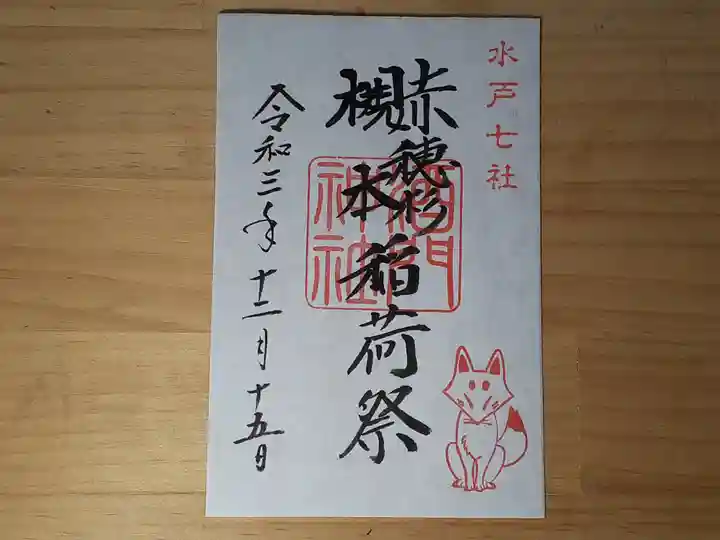 水戸七社
赤穂杉
本
稲荷祭
酒門
神社
令和三年十二月十五日